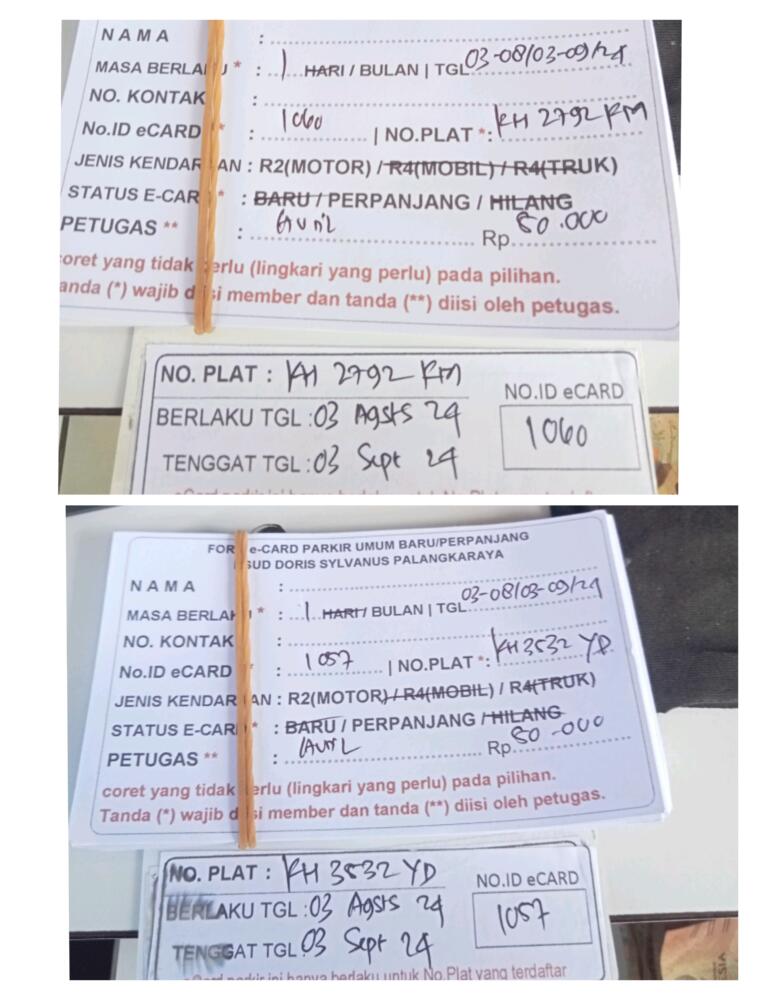 NAMA :
MASA BERLAKU * : 1 HARI / BULAN | TGL 03-08/03-09/24
NO. KONTAK :
No.ID eCARD * : 1060 | NO.PLAT *: KH 2792 RM
JENIS KENDARAAN : R2(MOTOR) / R4(MOBIL) / R4(TRUK)
STATUS E-CARD * : BARU / PERPANJANG / HILANG
PETUGAS ** : Rp. 80.000
coret yang tidak perlu (lingkari yang perlu) pada pilihan.
anda (*) wajib diisi member dan tanda (**) diisi oleh petugas.
NO. PLAT : KH 2792 RM
NO.ID eCARD
BERLAKU TGL : 03 Agsts 24
1060
TENGGAT TGL : 03 Sept 24
FORM e-CARD PARKIR UMUM BARU/PERPANJANG
RSUD DORIS SYLVANUS PALANGKARAYA
NAMA :
MASA BERLAKU * : 1 HARI / BULAN | TGL 03-08/03-09/24
NO. KONTAK :
No.ID eCARD * : 1057 | NO.PLAT *: KH 3532 YD
JENIS KENDARAAN : R2(MOTOR) / R4(MOBIL) / R4(TRUK)
STATUS E-CARD * : BARU / PERPANJANG / HILANG
PETUGAS ** : Rp. 80.000
coret yang tidak perlu (lingkari yang perlu) pada pilihan.
Tanda (*) wajib diisi member dan tanda (**) diisi oleh petugas.
NO. PLAT : KH 3532 YD
NO.ID eCARD
BERLAKU TGL : 03 Agsts 24
1057
TENGGAT TGL : 03 Sept 24
eCard parkir ini hanya berlaku untuk No.Plat yang terdaftar